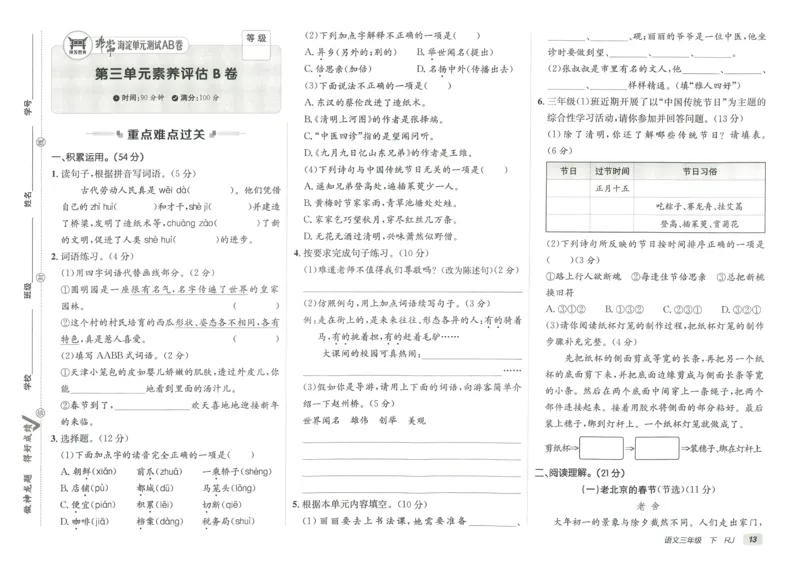 学号
姓名
班级
学校
做神龙题 得好成绩
海淀单元测试AB卷
等级
第三单元素养评估 B 卷
时间:90 分钟 满分:100 分
重点难点过关
一、积累运用。(54 分)
1. 读句子,根据拼音写词语。(5 分)
古代劳动人民真是 wěi dà( )。他们凭借
自己的 zhì huì( )和才干,shè jì( )并建造
了桥梁,发明了造纸术等,chuàng zào( )了新
的文明,促进了人类 shè huì( )的进步。
2. 词语练习。(4 分)
(1)用四字词语代替画线部分。(2 分)
①圆明园是一座很有名气,名字传遍了世界的皇家
园林。 ( )
②这个村的村民培育的西瓜形状、姿态各不相同,各有
特色,真是惹人喜爱。 ( )
(2)填写 AABB 式词语。(2 分)
①天津小笼包的皮如婴儿娇嫩的肌肤,透过外皮儿,你
能 地看到里面的汤汁儿。
②春节到了, 欢天喜地地迎接新年
的来临。
3. 选择题。(12 分)
(1)下面加点字的读音完全正确的一项是( )
A. 朝鲜(xiǎn) 前爪(zhuǎ) 一乘轿子(shèng)
B. 店铺(pù) 都城(dū) 马笼头(lǒng)
C. 便宜(pián) 积累(lěi) 切断(qiē)
D. 咖啡(jiā) 档案(dàng) 税务局(shuì)
(2)下列加点字解释不正确的一项是( )
A. 异乡(另外的;别的) B. 举世闻名(提出)
C. 倍思亲(加倍) D. 名扬中外(传播出去)
(3)下面说法不正确的一项是( )
A. 东汉的蔡伦改进了造纸术。
B.《清明上河图》的作者是张择端。
C.“中医四诊”指的是望闻问听。
D.《九月九日忆山东兄弟》的作者是王维。
(4)下列诗句与中国传统节日无关的一项是( )
A. 遥知兄弟登高处,遍插茱萸少一人。
B. 黄梅时节家家雨,青草池塘处处蛙。
C. 家家乞巧望秋月,穿尽红丝几万条。
D. 无花无酒过清明,兴味萧然似野僧。
4. 按要求完成句子练习。(10 分)
(1)难道老师不值得我们尊敬吗?(改为陈述句)(2 分)
(2)仿照例句,用上加点词语续写句子。(3 分)
例:走在街上的,是来来往往、形态各异的人:有的骑着
马,有的挑着担,有的赶着毛驴……
大课间的校园可真热闹:
……
(3)假如你是导游,请用上下面的词语,向游客简单介
绍一下赵州桥。(5 分)
世界闻名 雄伟 创举 美观
5. 根据本单元内容填空。(10 分)
(1)丽丽要去上书法课,她需要准备 、
、 、砚;丽丽的爷爷是一位中医,他坐
诊时要做到 、 、 、 。
(2)张叔叔是市里有名的文人,他 、 、
、 样样精通。(填“雅人四好”)
6. 三年级(1)班近期开展了以“中国传统节日”为主题的
综合性学习活动,请你参加并回答问题。(13 分)
(1)除了清明,你还了解哪些传统节日?请填表。
(6 分)
节日 过节时间 节日习俗
正月十五
吃粽子、赛龙舟、挂艾蒿
登高、插茱萸、赏菊花
(2)下列诗句所反映的节日按时间排序正确的一项是
( )(3 分)
①路上行人欲断魂 ②每逢佳节倍思亲 ③总把新桃
换旧符
A. ③①② B. ①③② C. ②③① D. ③②①
(3)请你阅读纸杯灯笼的制作过程,把纸杯灯笼的制作
步骤补充完整。(4 分)
先把纸杯的侧面剪成等宽的长条,再把另一个纸
杯的底面剪下来,并把底面边缘剪成与侧面长条等宽
的小条。然后在两个底面中间穿上一条绳子,把两个
部件连接起来。接着用胶水将侧面的部分粘好。最后
装上穗子,绑到灯杆上。一个纸杯灯笼就做成了。
剪纸杯⇒ ⇒ ⇒装穗子、绑在灯杆上
二、阅读理解。(21 分)
(一)老北京的春节(节选)(11 分)
老 舍
大年初一的景象与除夕截然不同。人们走出家门,
语文三年级 下 RJ 13